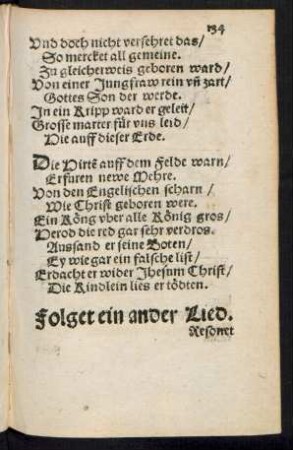 134
Vnd doch nicht versehret das/
So mercket all gemeine.
Zu gleicherweis geboren ward/
Von einer Jungfraw rein vñ zart/
Gottes Son der werde.
In ein Kripp ward er geleit/
Grosse marter für vns leid/
Hie auff dieser Erde.
Die Hirtē auff dem Felde warn/
Erfuren newe Mehre.
Von den Engelischen scharn/
Wie Christ geboren were.
Ein Köng vber alle König gros/
Herod die red gar sehr verdros.
Aussand er seine Boten/
Ey wie gar ein falsche list/
Erdacht er wider Jhesum Christ/
Die Kindlein lies er tödten.
Folget ein ander Lied.
Resonet